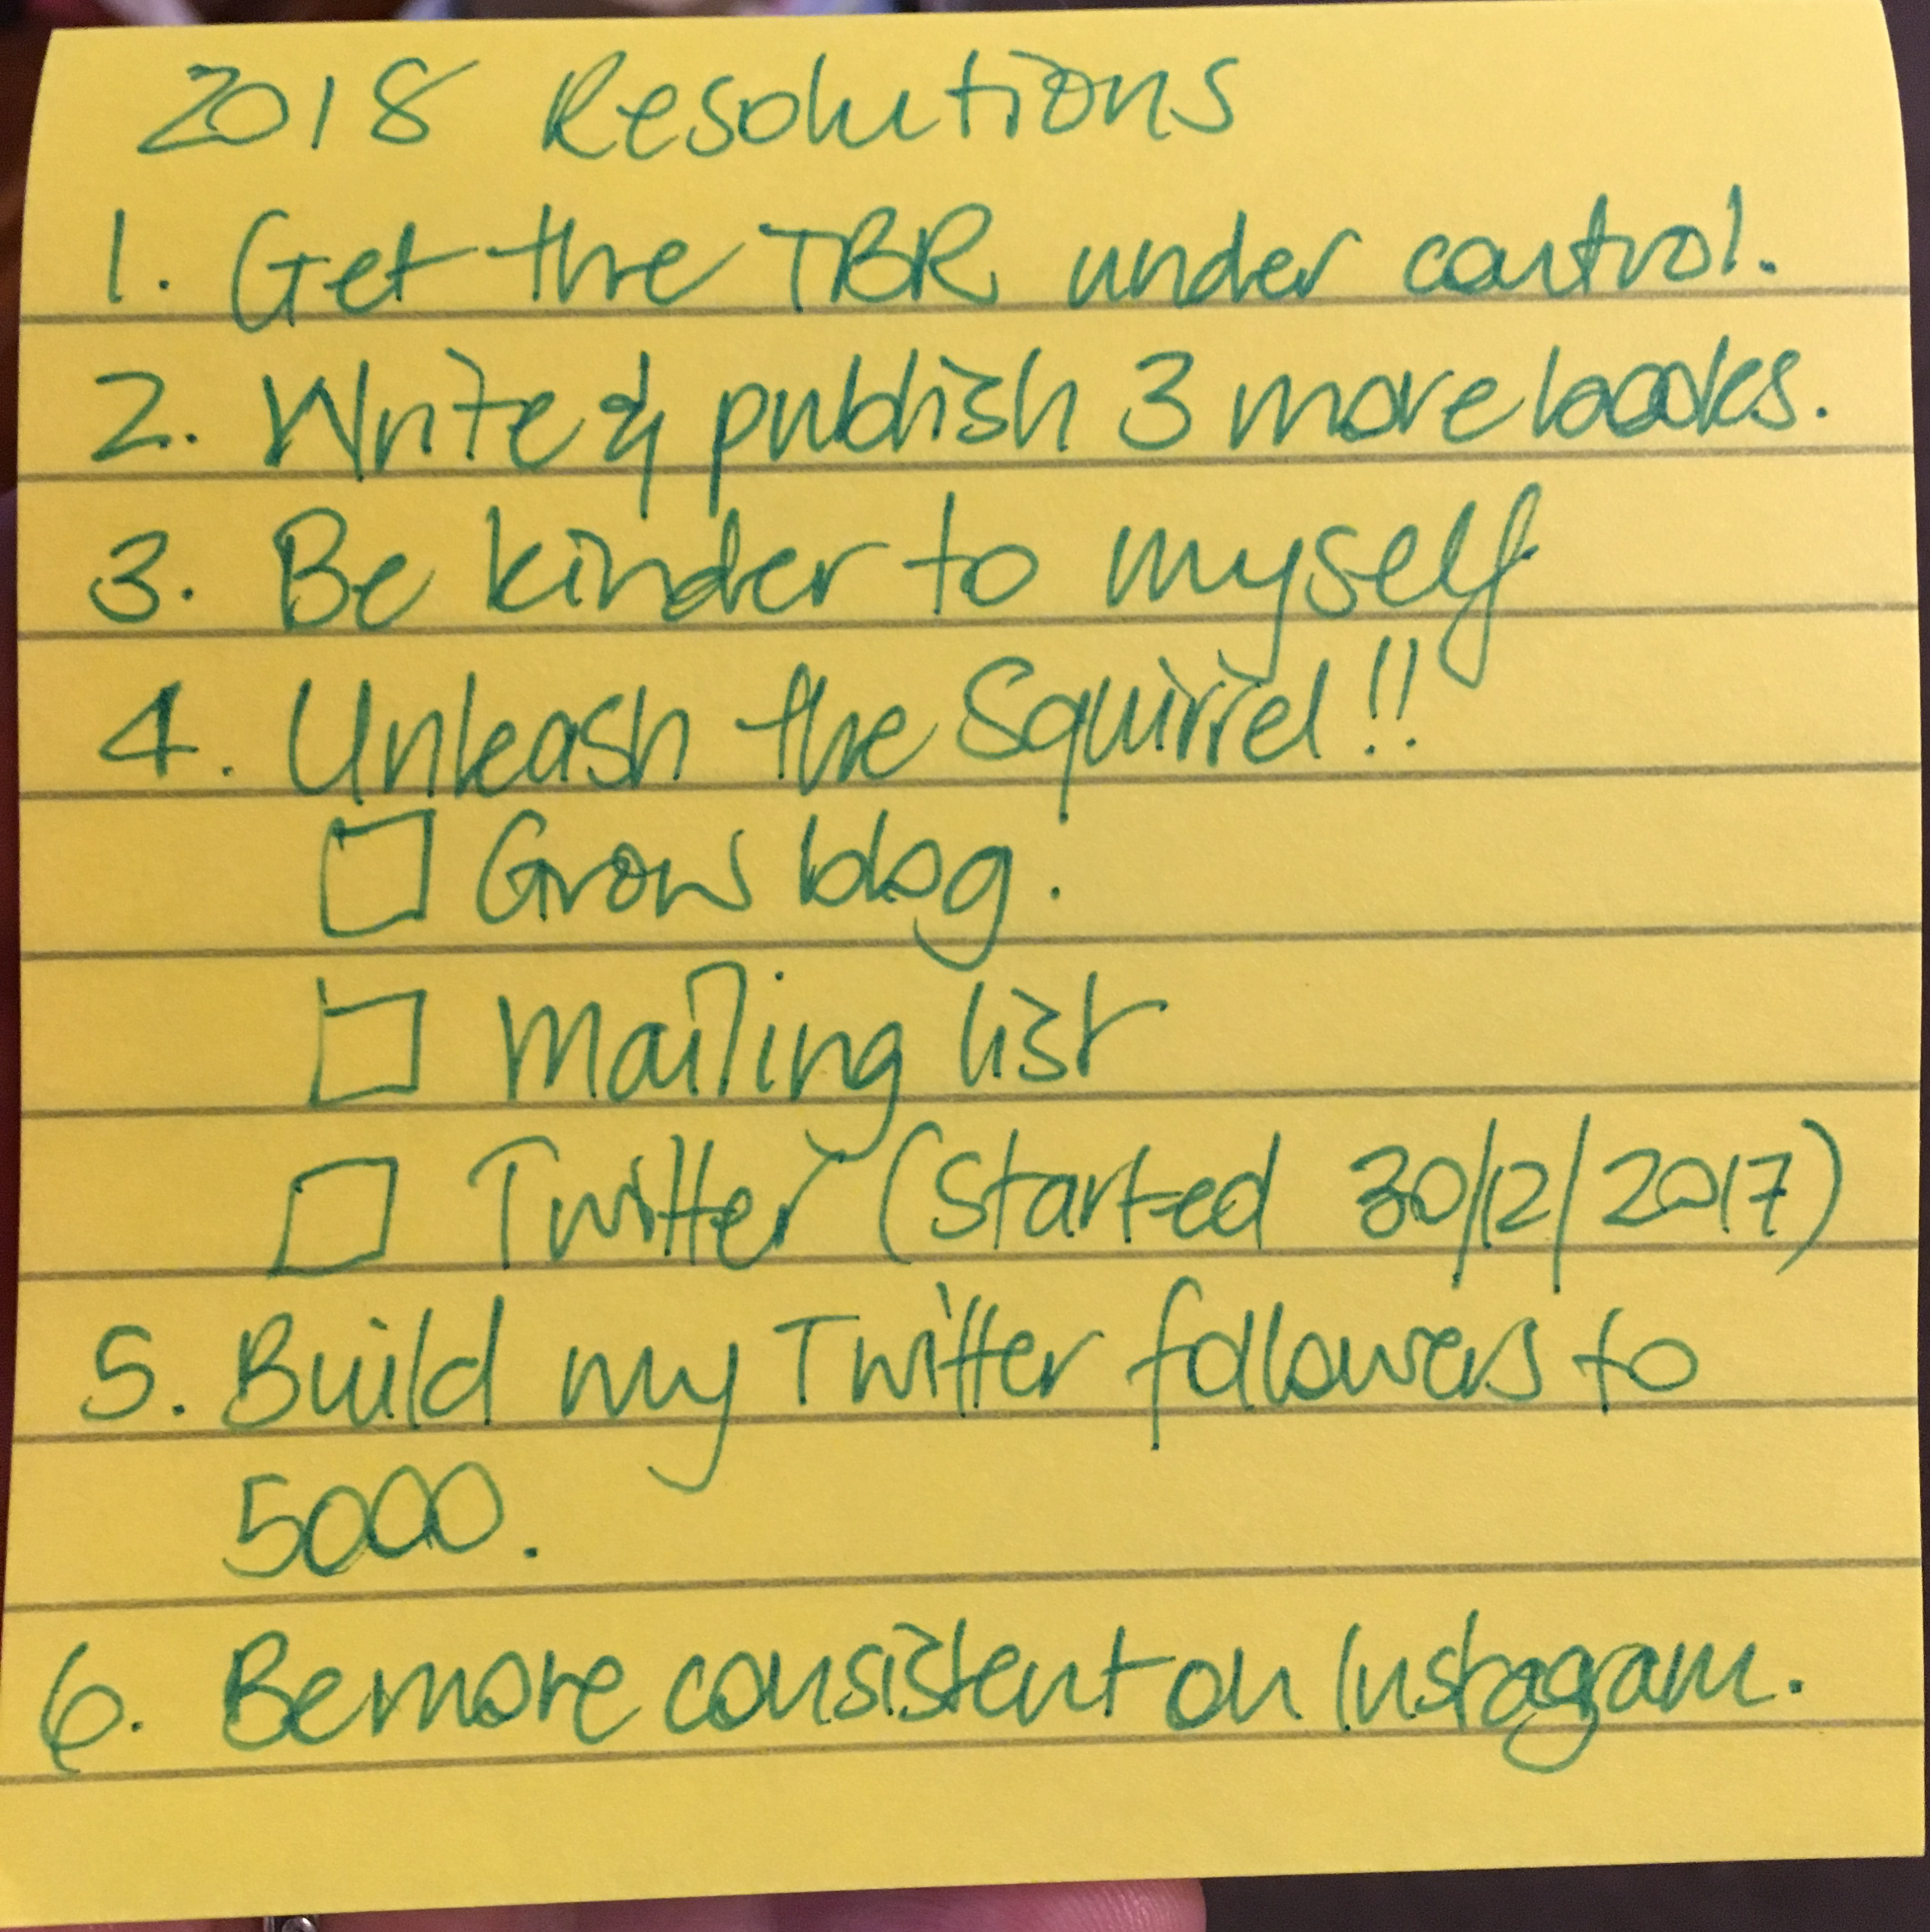 2018 Resolutions
1. Get the TBR under control.
2. Write & publish 3 more books.
3. Be kinder to myself
4. Unleash the Squirrel!!
☐ Grow blog.
☐ Mailing list
☐ Twitter (started 30/12/2017)
5. Build my Twitter followers to
5000.
6. Be more consistent on Instagram.